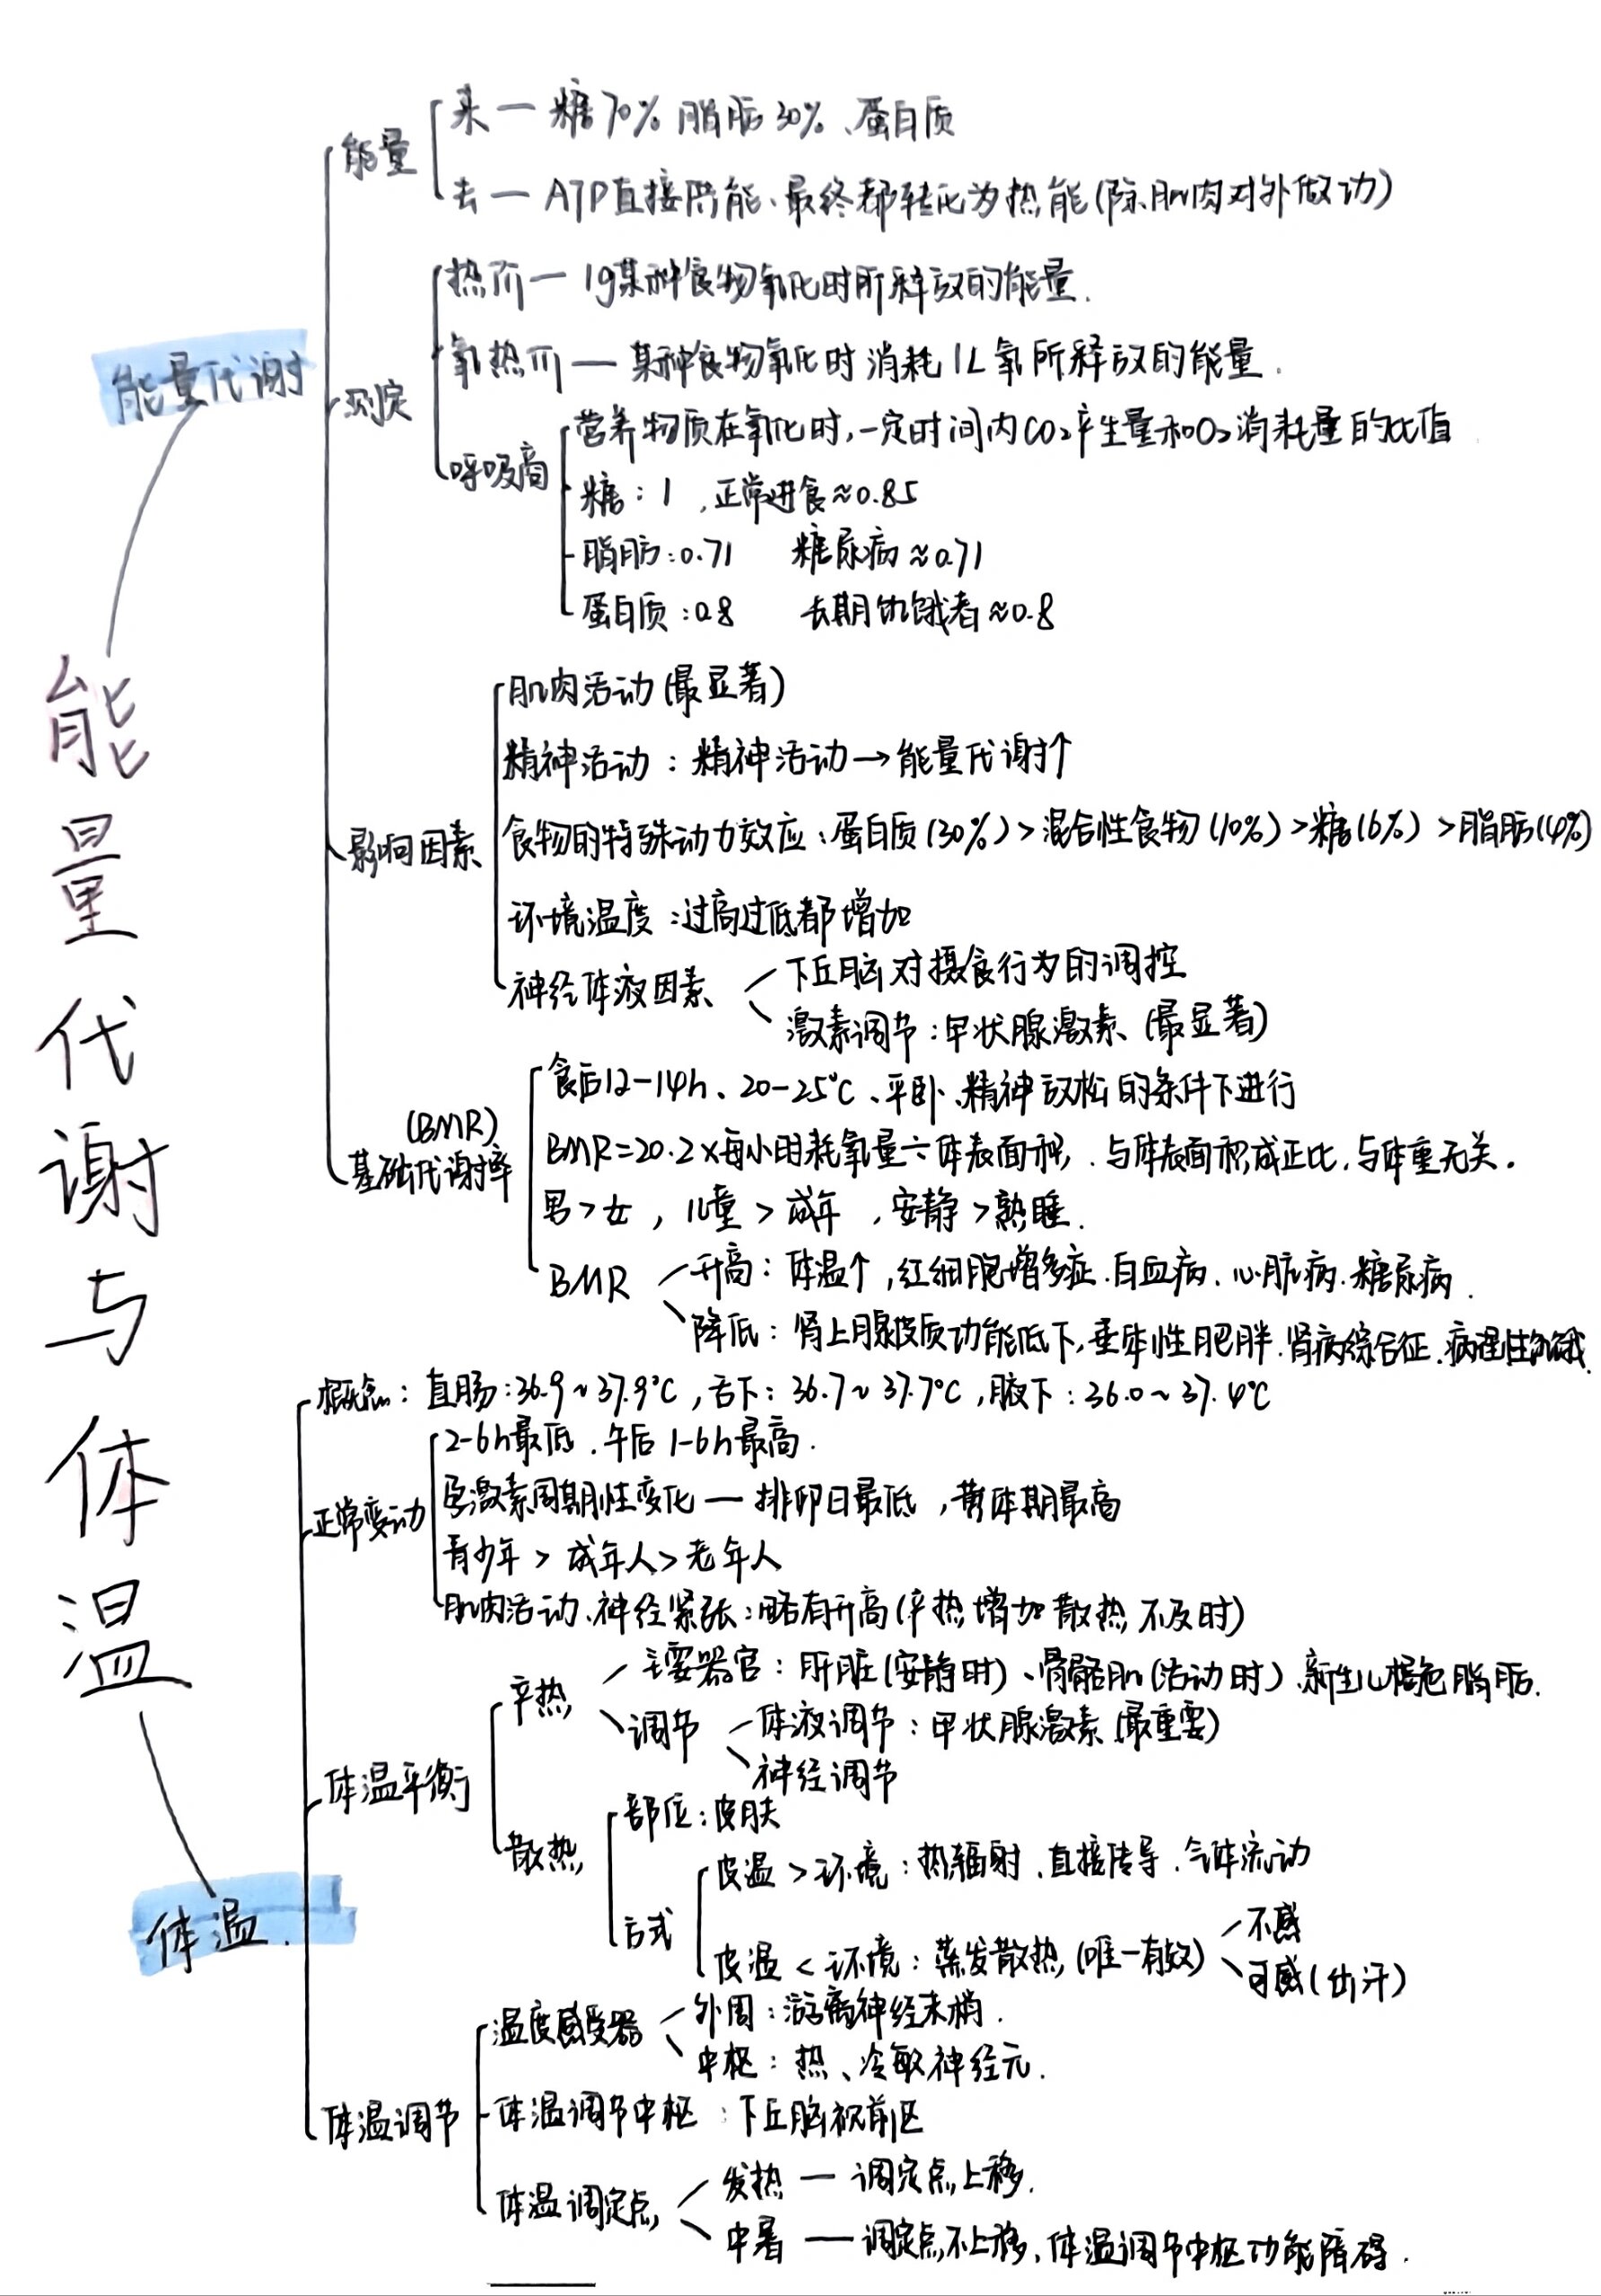 能量代谢与体温
能量代谢
能量
来一糖70% 脂肪30%、蛋白质
去一ATP直接供能、最终都转化为热能(除肌肉对外做功)
测定
热价一1g某种食物氧化时所释放的能量.
氧热价一某种食物氧化时消耗1L氧所释放的能量.
呼吸商
营养物质在氧化时,一定时间内CO₂产生量和O₂消耗量的比值
糖:1,正常进食≈0.85
脂肪:0.71 糖尿病≈0.71
蛋白质:0.8 长期饥饿者≈0.8
影响因素
肌肉活动(最显著)
精神活动:精神活动→能量代谢↑
食物的特殊动力效应:蛋白质(30%)>混合性食物(10%)>糖(6%)>脂肪(4%)
环境温度:过高过低都增加
神经体液因素
下丘脑对摄食行为的调控
激素调节:甲状腺激素(最显著)
(BMR)
基础代谢率
食后12-14h、20-25°C、平卧、精神放松的条件下进行
BMR=20.2×每小时耗氧量÷体表面积,与体表面积成正比,与体重无关.
男>女,儿童>成年,安静>熟睡.
BMR
升高:体温个,红细胞增多症.白血病.心脏病.糖尿病.
降低:肾上腺皮质功能低下,垂体性肥胖.肾病综合征.病理性饥饿.
体温.
概念:直肠:36.9~37.9°C,舌下:36.7~37.7°C,腋下:36.0~37.4°C
正常变动
2-6h最低.午后1-6h最高.
孕激素周期性变化一排卵日最低,黄体期最高
青少年>成年人>老年人
肌肉活动、神经紧张:略有升高(产热增加散热不及时)
体温平衡
产热
主要器官:肝脏(安静时)、骨骼肌(活动时)、新生儿褐色脂肪.
调节
体液调节:甲状腺激素(最重要)
神经调节
散热
部位:皮肤
方式
皮温>环境:热辐射.直接传导.气体流动
皮温<环境:蒸发散热(唯一有效)
不感
可感(出汗)
体温调节
温度感受器
外周:游离神经末梢.
中枢:热、冷敏神经元.
体温调节中枢:下丘脑视前区
体温调定点
发热一调定点上移.
中暑一调定点不上移、体温调节中枢功能障碍.